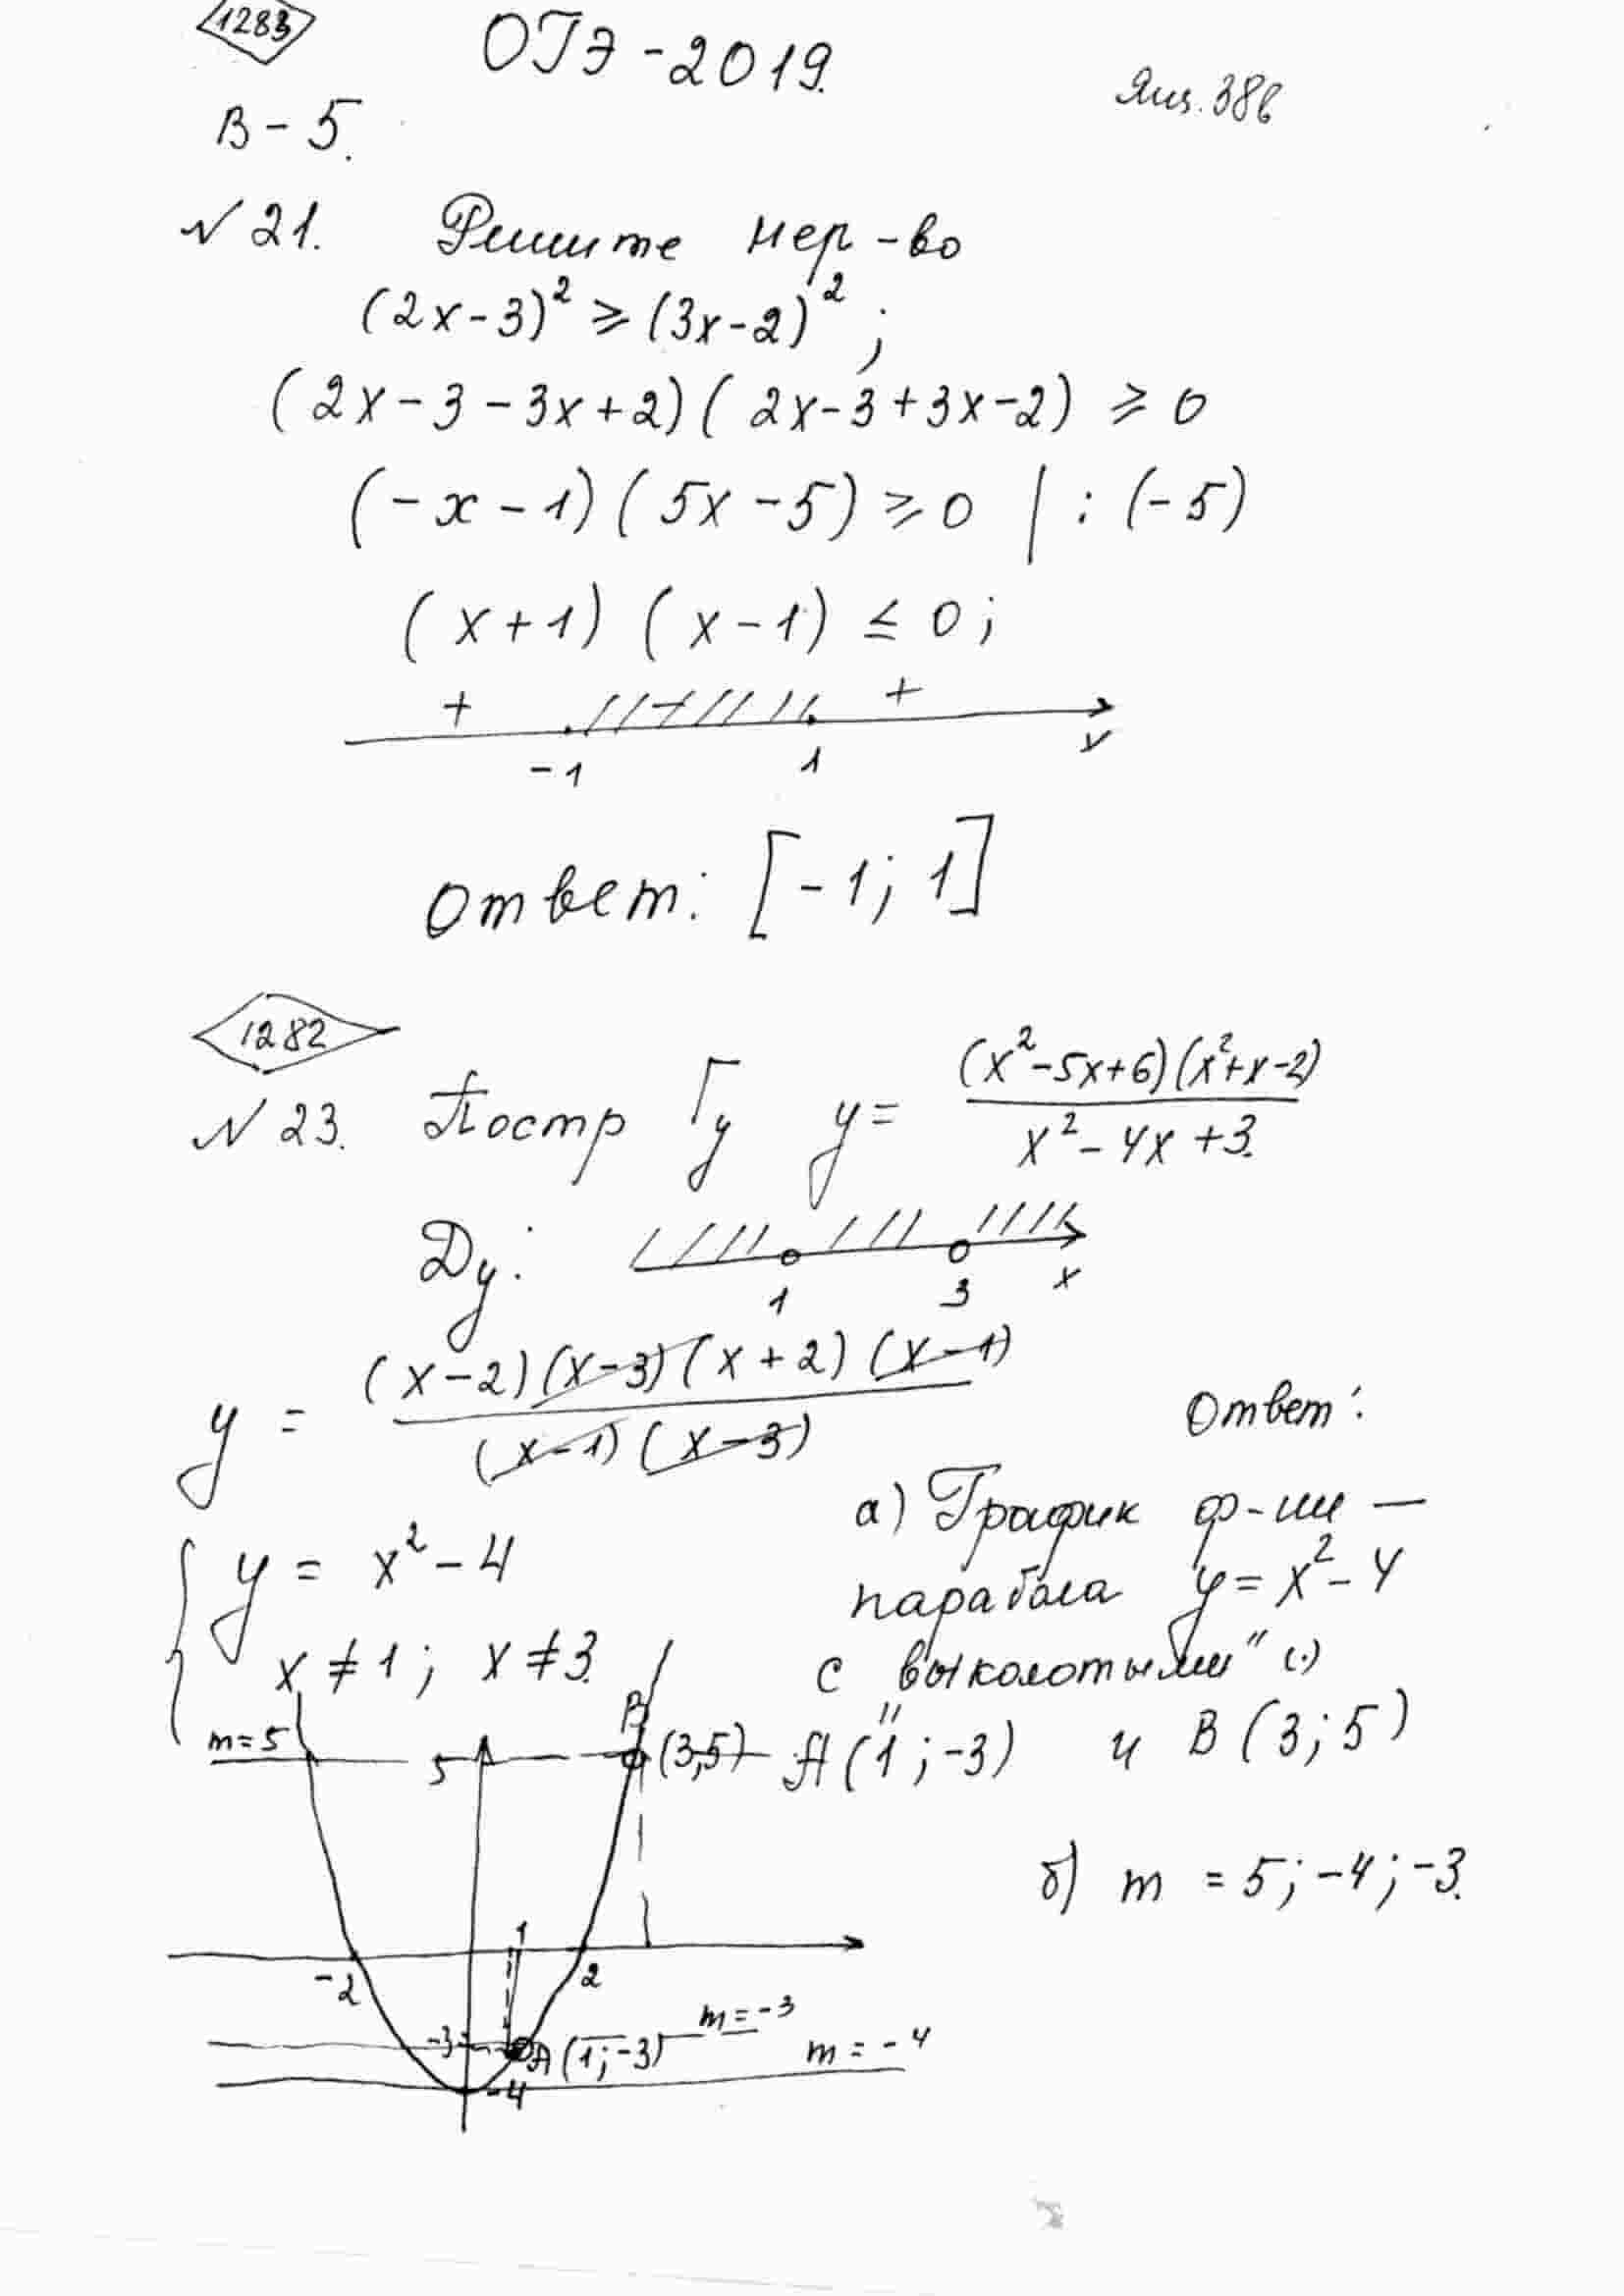 1283
ОГЭ-2019.
Ящ. 38в
В-5.
№ 21. Решите нер-во
(2x-3)² ≥ (3x-2)²;
(2x-3-3x+2)(2x-3+3x-2) ≥ 0
(-x-1)(5x-5) ≥ 0 | : (-5)
(x+1)(x-1) ≤ 0;
+ - +
-1 1 x
Ответ: [-1; 1]
1282
№ 23. Постр Гy y = (x²-5x+6)(x²+x-2) / x²-4x+3.
Dy:
1 3 x
y = (x-2)(x-3)(x+2)(x-1) / (x-1)(x-3)
Ответ:
{ y = x²-4
x ≠ 1; x ≠ 3.
а) График ф-ии —
парабола y = x²-4
с "выколотыми" (·)
A(1; -3) и B(3; 5)
б) m = 5; -4; -3.
m=5 5 B (3,5)
1
-2 2
-3 A(1;-3) m=-3
-4 m=-4